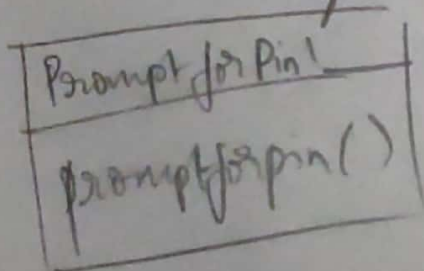 Prompt for Pin!
promptforpin()